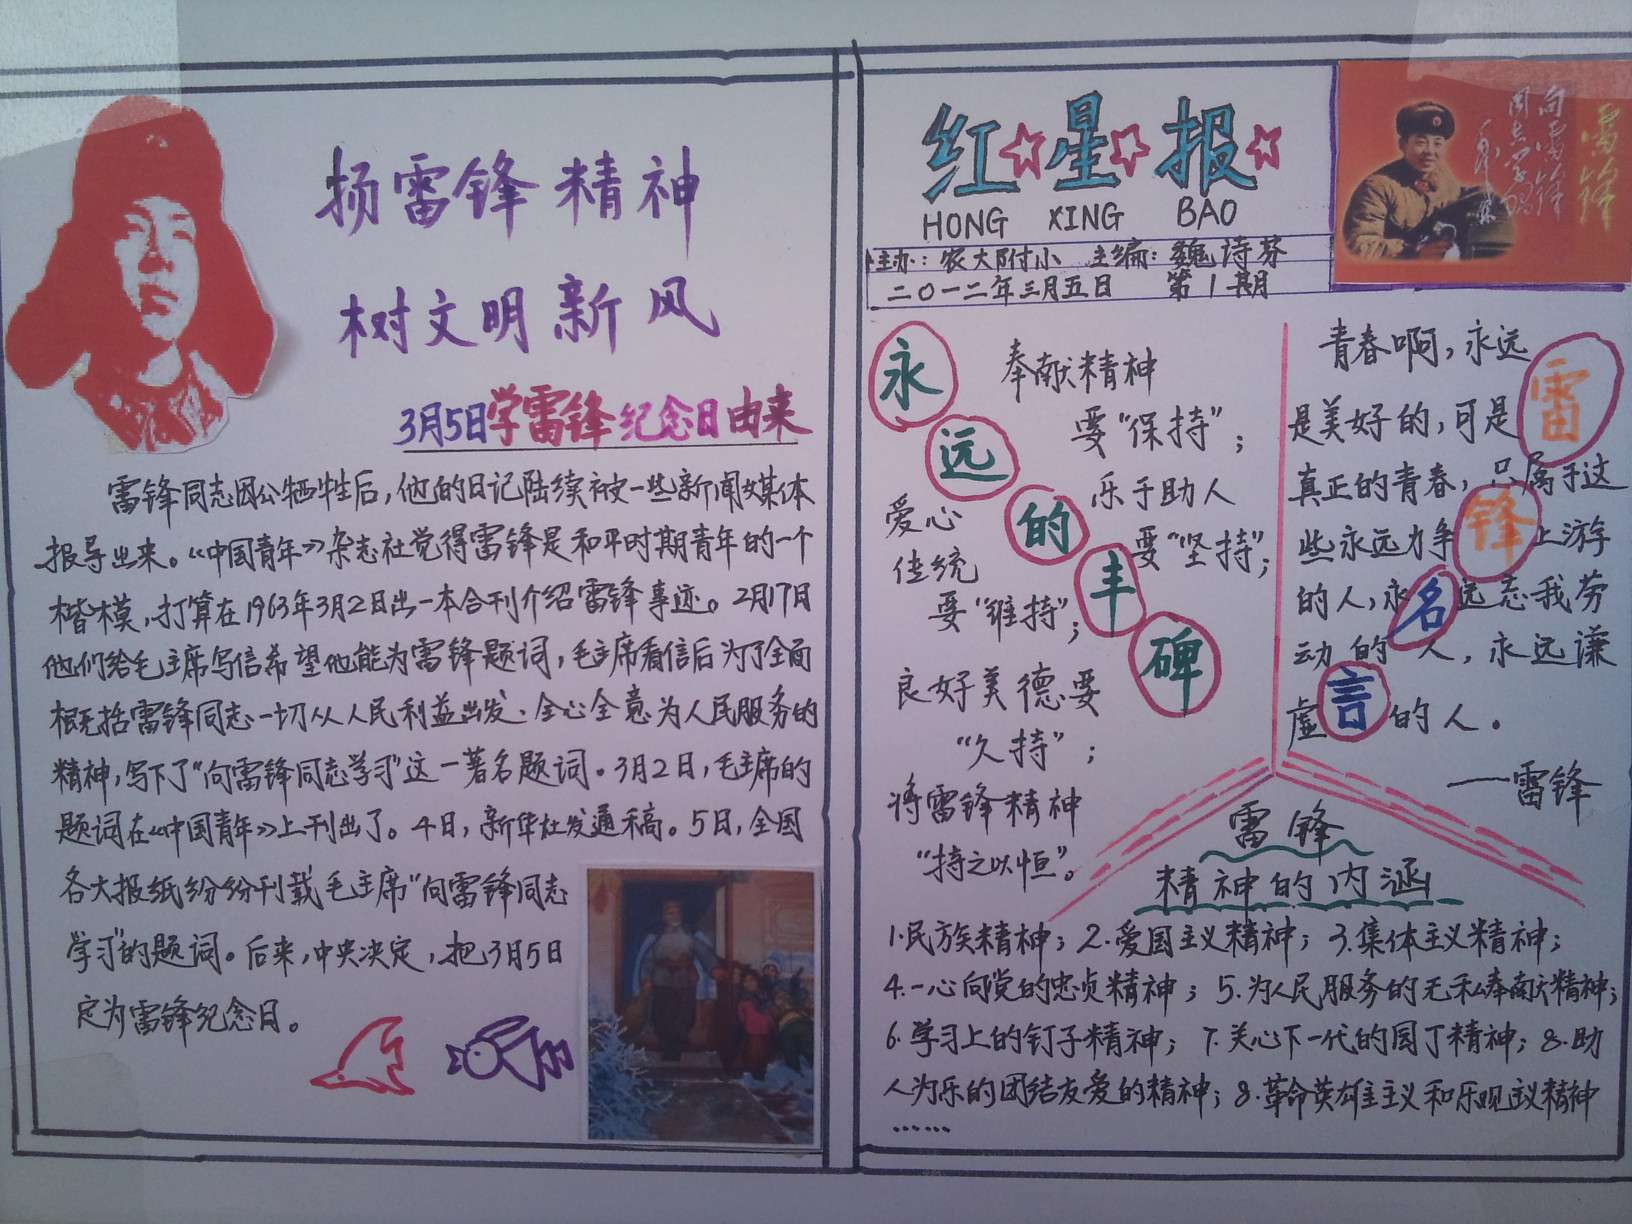 扬雷锋精神
树文明新风
3月5日学雷锋纪念日由来
雷锋同志因公牺牲后，他的日记陆续被一些新闻媒体
报导出来。《中国青年》杂志社觉得雷锋是和平时期青年的一个
楷模，打算在1963年3月2日出一本合刊介绍雷锋事迹。2月17日
他们给毛主席写信希望他能为雷锋题词，毛主席看信后为了全面
概括雷锋同志一切从人民利益出发、全心全意为人民服务的
精神，写下了“向雷锋同志学习”这一著名题词。3月2日，毛主席的
题词在《中国青年》上刊出了。4日，新华社发通稿。5日，全国
各大报纸纷纷刊载毛主席“向雷锋同志
学习”的题词。后来，中央决定，把3月5日
定为雷锋纪念日。
红星报
HONG XING BAO
主办：农大附小 主编：魏诗芬
二〇一二年三月五日 第1期
雷锋
向雷锋
同志学习
毛泽东
永远的丰碑
奉献精神
要“保持”；
乐于助人
要“坚持”；
爱心
传统
要“维持”；
良好美德要
“久持”；
将雷锋精神
“持之以恒”。
雷锋名言
青春啊，永远
是美好的，可是
真正的青春，只属于这
些永远力争上游
的人，永远忘我劳
动的人，永远谦
虚的人。
——雷锋
雷锋
精神的内涵
1.民族精神；2.爱国主义精神；3.集体主义精神；
4.一心向党的忠贞精神；5.为人民服务的无私奉献精神；
6.学习上的钉子精神；7.关心下一代的园丁精神；8.助
人为乐的团结友爱的精神；8.革命英雄主义和乐观主义精神
……